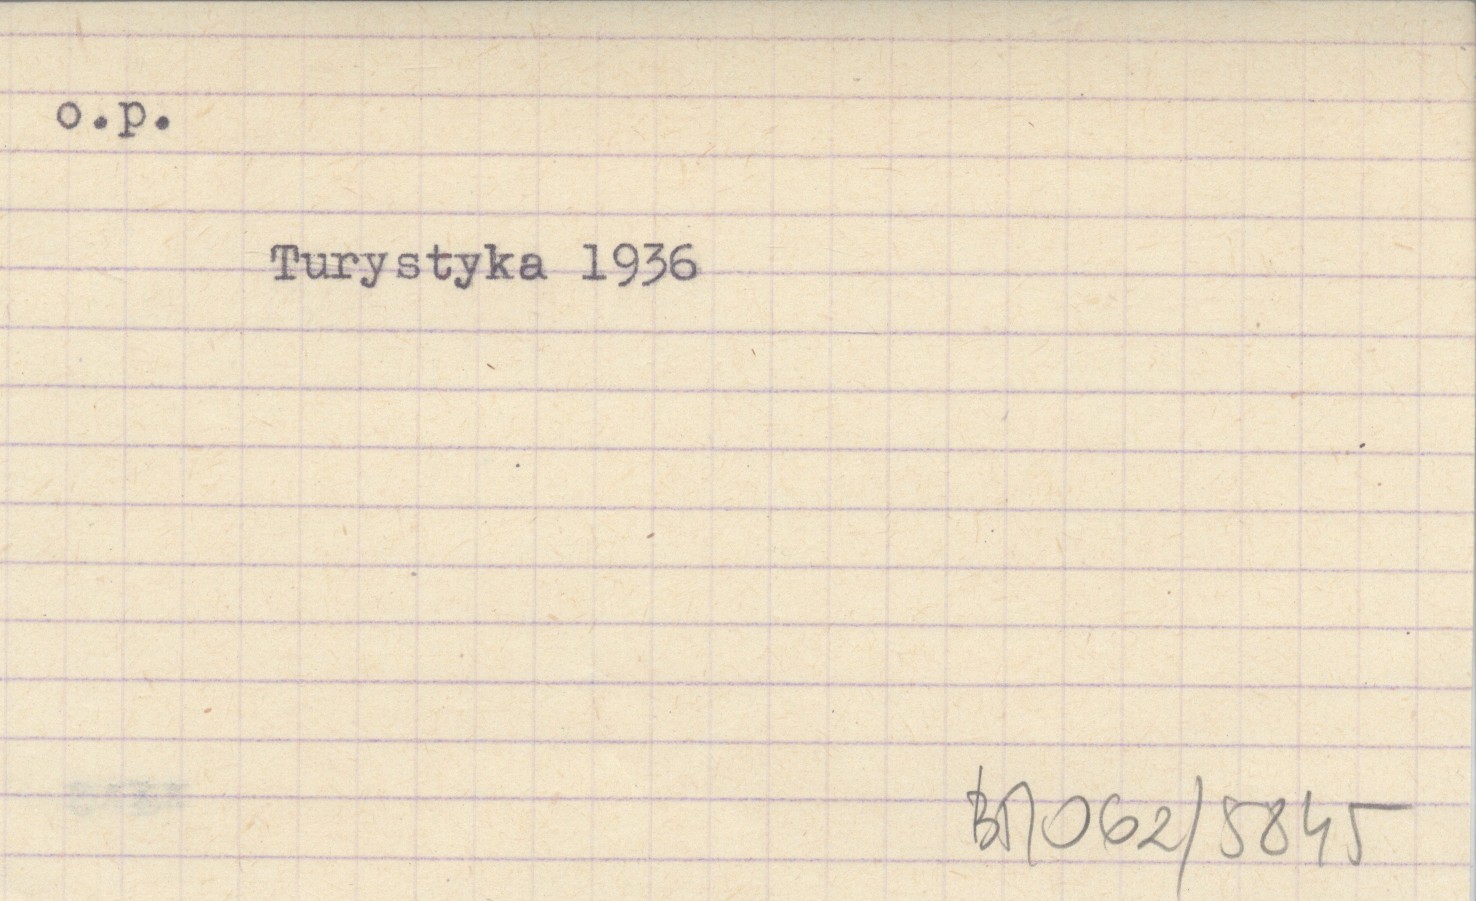 o.p.
Turystyka 1936
BN062/5845